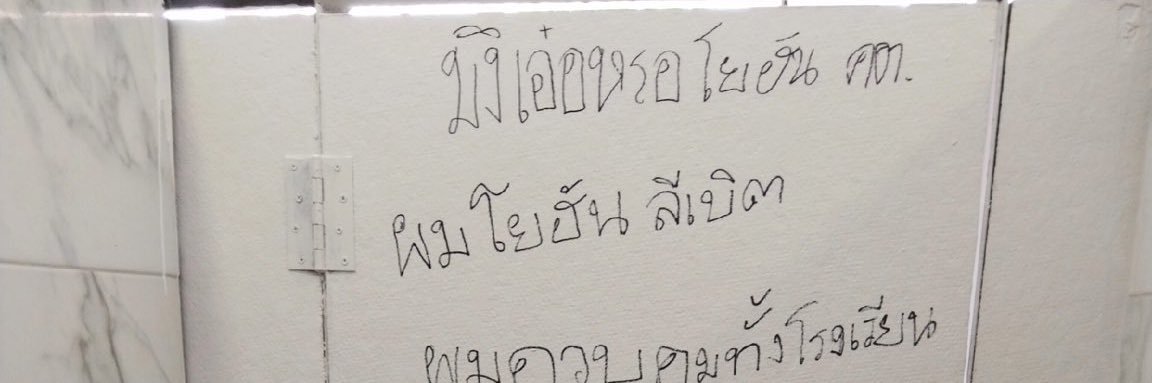 มึงเอ๋อหรอ โยฮัน คต.
ผมโยฮัน ลีเบิต
ผมควบคุมทั้งโรงเรียน